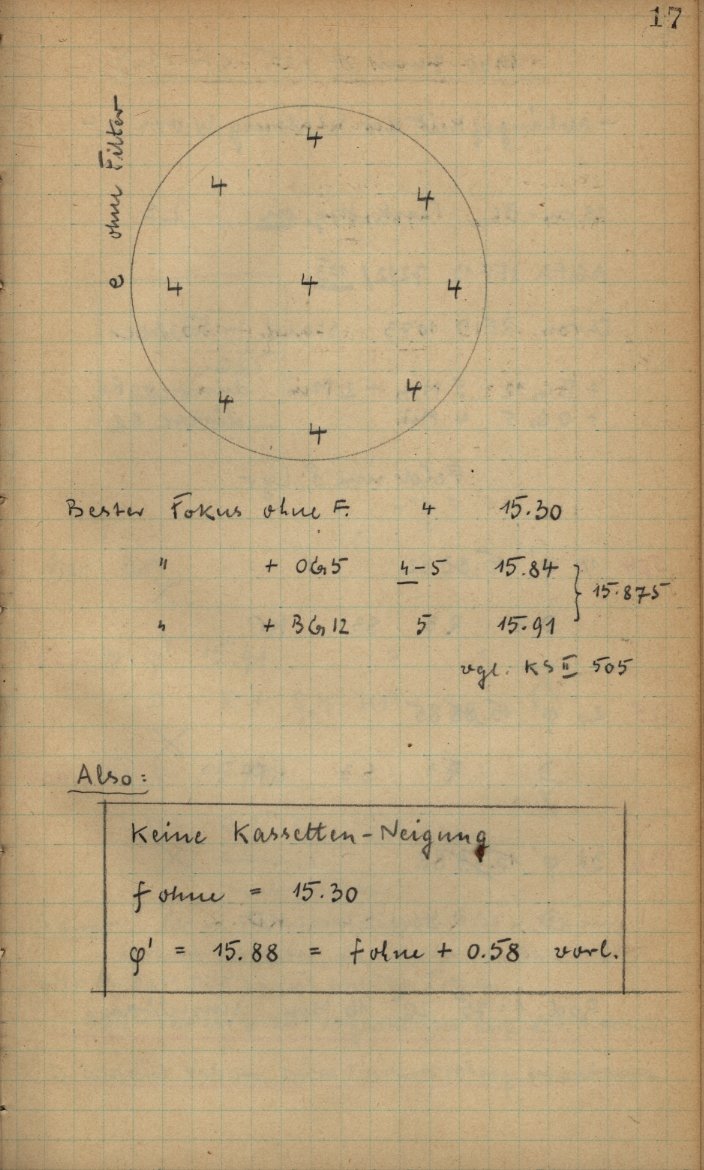 17
e ohne Filter
4
4 4
4 4 4
4 4
4
Bester Fokus ohne F. 4 15.30
" + OG5 4-5 15.84
} 15.875
" + BG12 5 15.91
vgl. KS II 505
Also:
Keine Kassetten-Neigung
f ohne = 15.30
φ' = 15.88 = f ohne + 0.58 vorl.